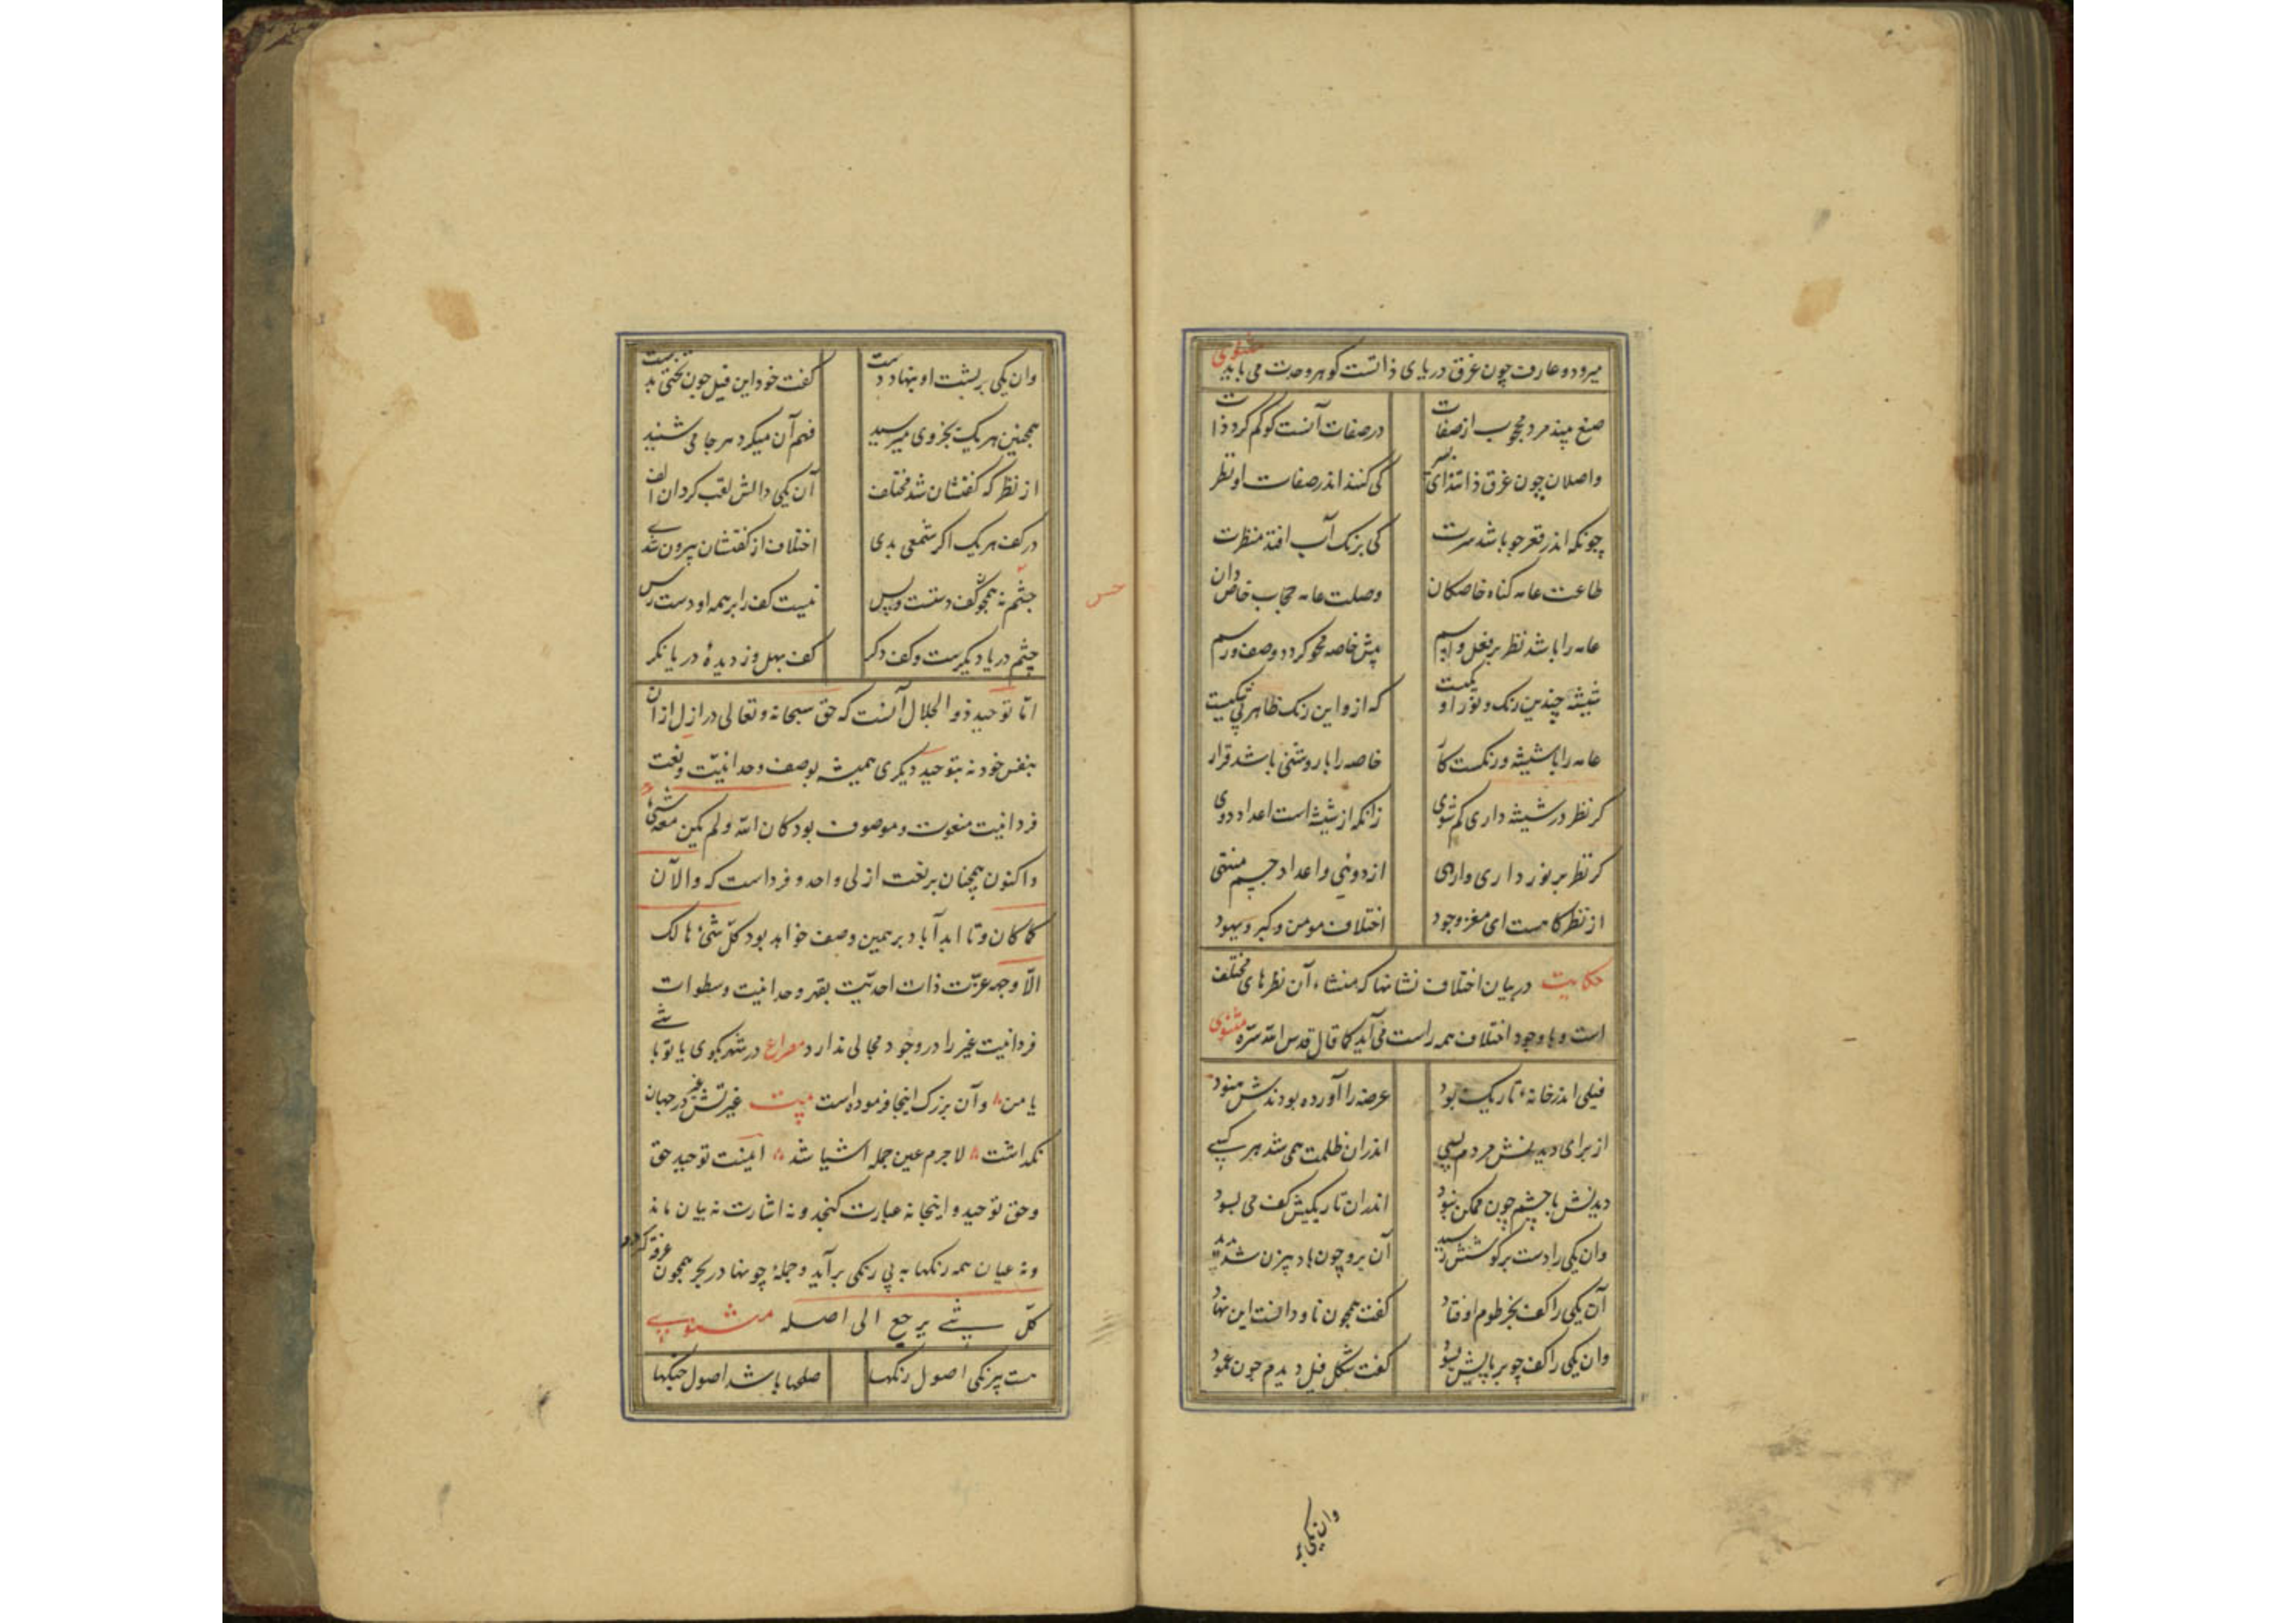 میرود و عارف چون غرق دریای ذاتست کوهر وحدت می یابد مثنوی
صنع بیند مرد محجوب از صفات در صفات آنست کو کم کرد ذات
واصلان چون غرق ذاتند ای پسر کی کنند اندر صفات او نظر
چونکه اندر قعر جو باشد سرت کی برنک آب افتد منظرت
طاعت عامه کناه خاصکان وصلت عامه حجاب خاص دان
عامه را باشد نظر بر فعل و اسم پیش خاصه محو کردد وصف و رسم
شیشه چندین رنک و نور او یکیست که ازو این رنک ظاهر
عامه را با شیشه و رنکست کار خاصه را با روشنی باشد قرار
کر نظر در شیشه داری کم شوی زانکه از شیشه است اعداد دوی
کر نظر بر نور داری وارهی از دوئی و اعداد جسم منتهی
از نظرکاهست ای مغز وجود اختلاف مومن و کبر و یهود
حکایت در بیان اختلاف نشانها که منشاء آن نظرهای مختلف
است و با وجود اختلاف همه راست می آید کما قال قدس الله سره مثنوی
فیلی اندر خانهٔ تاریک بود عرضه را آورده بودندش هنود
از برای دیدنش مردم بسی اندران ظلمت همی شد هر کسی
دیدنش با چشم چون ممکن نبود اندران تاریکیش کف می بسود
وان یکی را دست بر کوشش رسید آن برو چون بادبیزن شد پدید
آن یکی را کف بخرطوم اوفتاد کفت همچون ناودانست این نهاد
وان یکی را کف چو بر پایش بسود کفت شکل فیل دیدم چون عمود
وان یکی بر
وان یکی بر پشت او بنهاد دست کفت خود این فیل چون تختی بدست
همچنین هر یک بجزوی میرسید فهم آن میکرد هر جا می شنید
از نظرکه کفتشان شد مختلف آن یکی دالش لقب کرد ان الف
در کف هر یک اکر شمعی بدی اختلاف از کفتشان بیرون شدی
حس
چشم همچو کف دستست و بس نیست کف را بر همه او دست رس
چشم دریا دیکرست و کف دکر کف بهل وز دیدهٔ دریا نکر
اما توحید ذو الجلال آنست که حق سبحانه و تعالی در ازل ازان
بنفس خود نه بتوحید دیکری همیشه بوصف وحدانیت و نعت
فردانیت منعوت و موصوف بود کان الله و لم یکن معه شیء
و اکنون همچنان بر نعت ازلی واحد و فرد است که والآن
کما کان و تا ابد آباد بر همین وصف خواهد بود کل شیء هالک
الا وجهه عزت ذات احدیت بقهر وحدانیت و سطوات
فردانیت غیر را در وجود مجالی نذارد مصراع در شهر بکوی یا تو باشی
یا من و آن بزرک اینجا فرموده است بیت غیرتش غیر در جهان
نکداشت لاجرم عین جمله اشیا شد اینست توحید حق
و حق توحید و اینجا نه عبارت کنجد و نه اشارت نه بیان ماند
و نه عیان همه رنکها به بی رنکی برآید و جملهٔ چونها در بحر همچون غرقه کردد
کل شیء یرجع الی اصله مثنوی
هست بیرنکی اصول رنکها صلحها باشد اصول جنکها